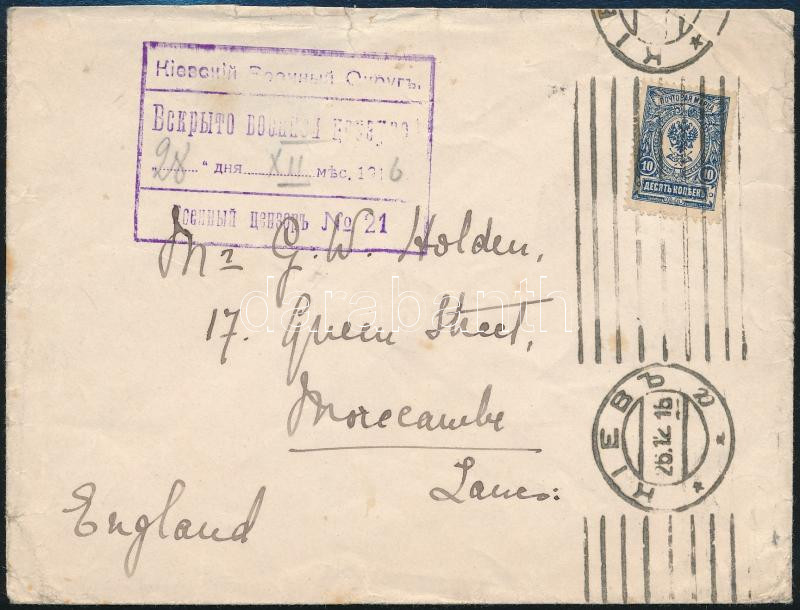 КІЕ
Кіевскій Военный Округъ.
Вскрыто военной цензурой
„28“ дня XII мѣс. 1916
Военный цензоръ № 21
ПОЧТОВАЯ МАРКА
10 10
ДЕСЯТЬ КОПѢЕКЪ
Mr G. W. Holden,
17. Queen Street,
Morecambe
Lancs:
England
КІЕВЪ
26.12.16
darabanth